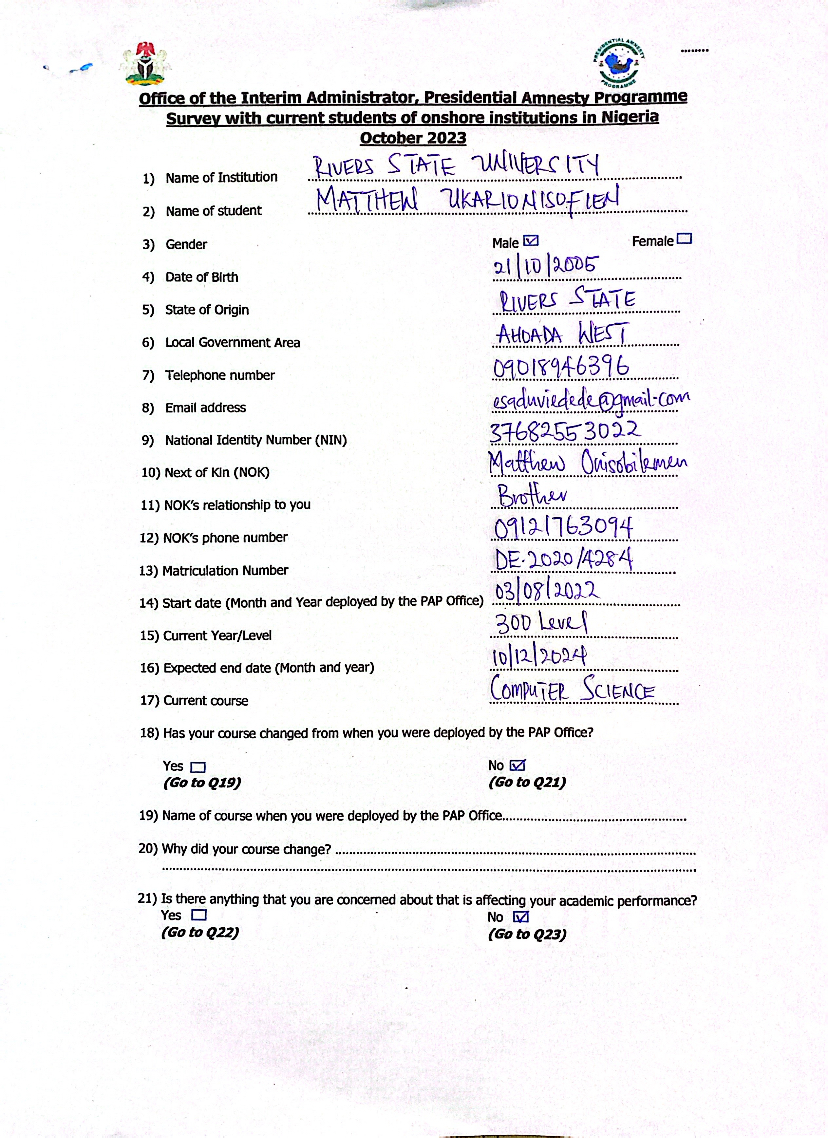 Office of the Interim Administrator, Presidential Amnesty Programme
Survey with current students of onshore institutions in Nigeria
October 2023
1) Name of Institution RIVERS STATE UNIVERSITY
2) Name of student MATTHEW UKARIONISOFIEN
3) Gender Male ☑ Female ☐
4) Date of Birth 21/10/2005
5) State of Origin RIVERS STATE
6) Local Government Area AHOADA WEST
7) Telephone number 09018946396
8) Email address esaduviedede@gmail.com
9) National Identity Number (NIN) 37682553022
10) Next of Kin (NOK) Matthew Onisobilemen
11) NOK's relationship to you Brother
12) NOK's phone number 09121763094
13) Matriculation Number DE.2020/4284
14) Start date (Month and Year deployed by the PAP Office) 03/08/2022
15) Current Year/Level 300 Level
16) Expected end date (Month and year) 10/12/2024
17) Current course COMPUTER SCIENCE
18) Has your course changed from when you were deployed by the PAP Office?
Yes ☐ No ☑
(Go to Q19) (Go to Q21)
19) Name of course when you were deployed by the PAP Office
20) Why did your course change?
21) Is there anything that you are concerned about that is affecting your academic performance?
Yes ☐ No ☑
(Go to Q22) (Go to Q23)